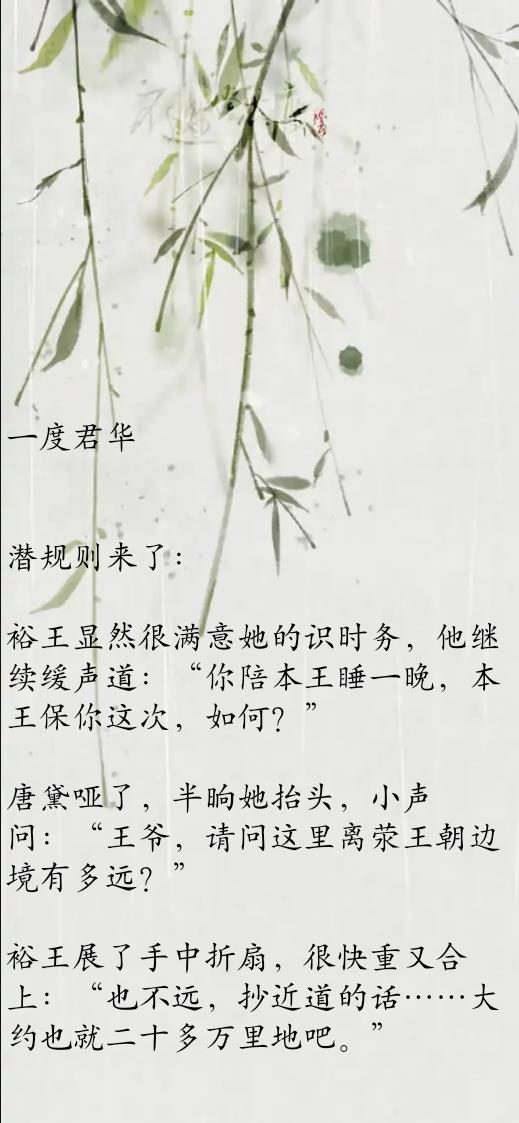 一度君华
潜规则来了：
裕王显然很满意她的识时务，他继
续缓声道：“你陪本王睡一晚，本
王保你这次，如何？”
唐黛哑了，半晌她抬头，小声
问：“王爷，请问这里离荥王朝边
境有多远？”
裕王展了手中折扇，很快重又合
上：“也不远，抄近道的话……大
约也就二十多万里地吧。”